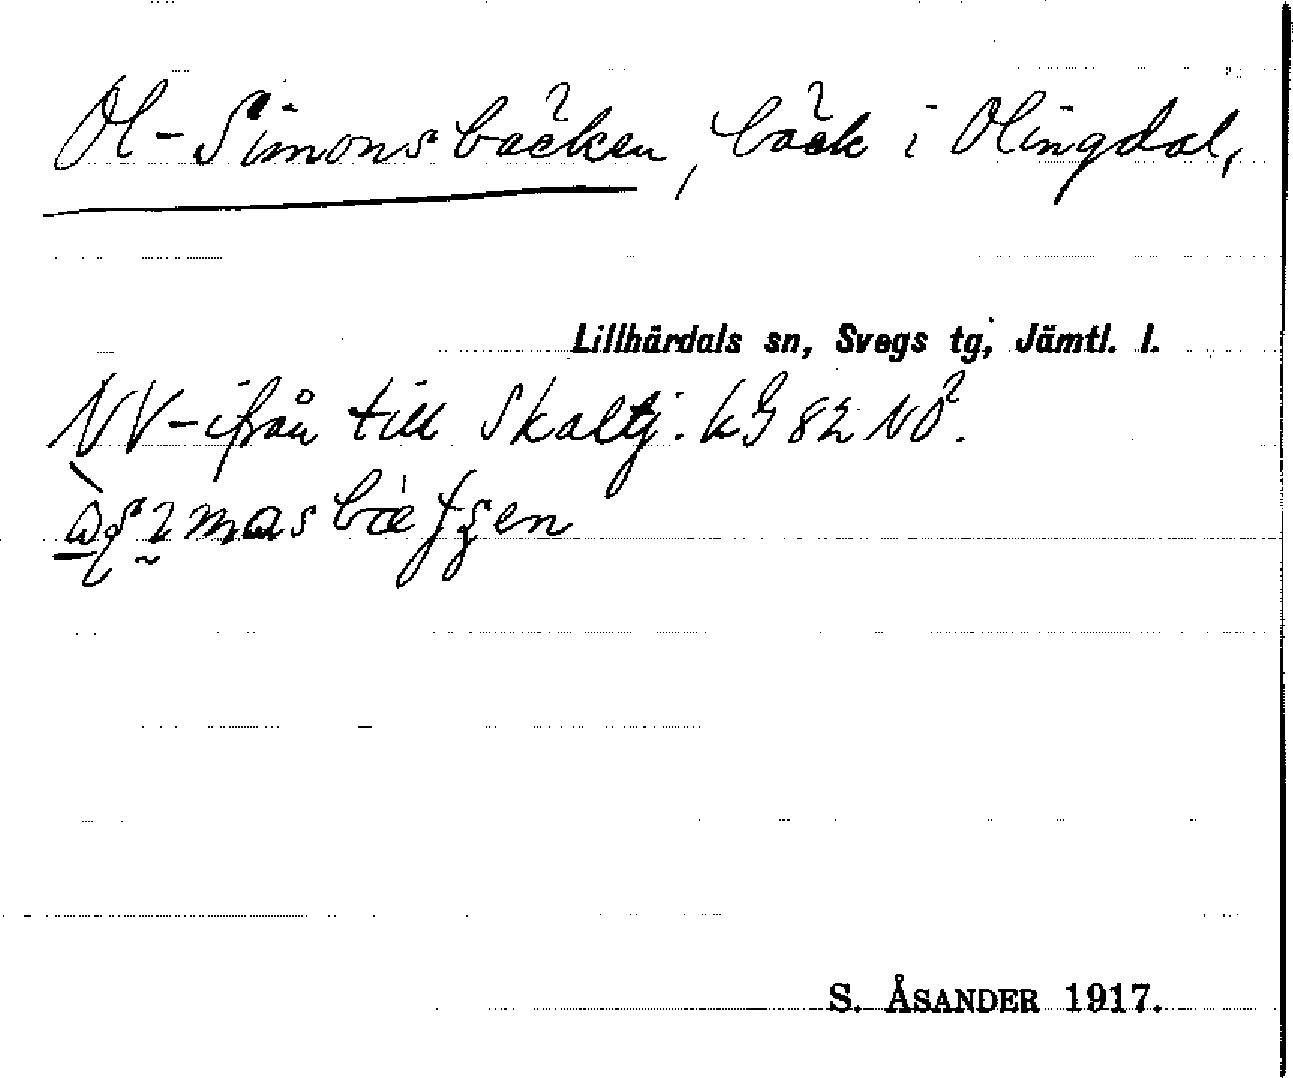 Ol-Simonsbäcken, bäck i Olingdal,
Lillhärdals sn, Svegs tg, Jämtl. l.
NV-ifrån till Skaltj. kG 82 NÖ.
S. ÅSANDER 1917.